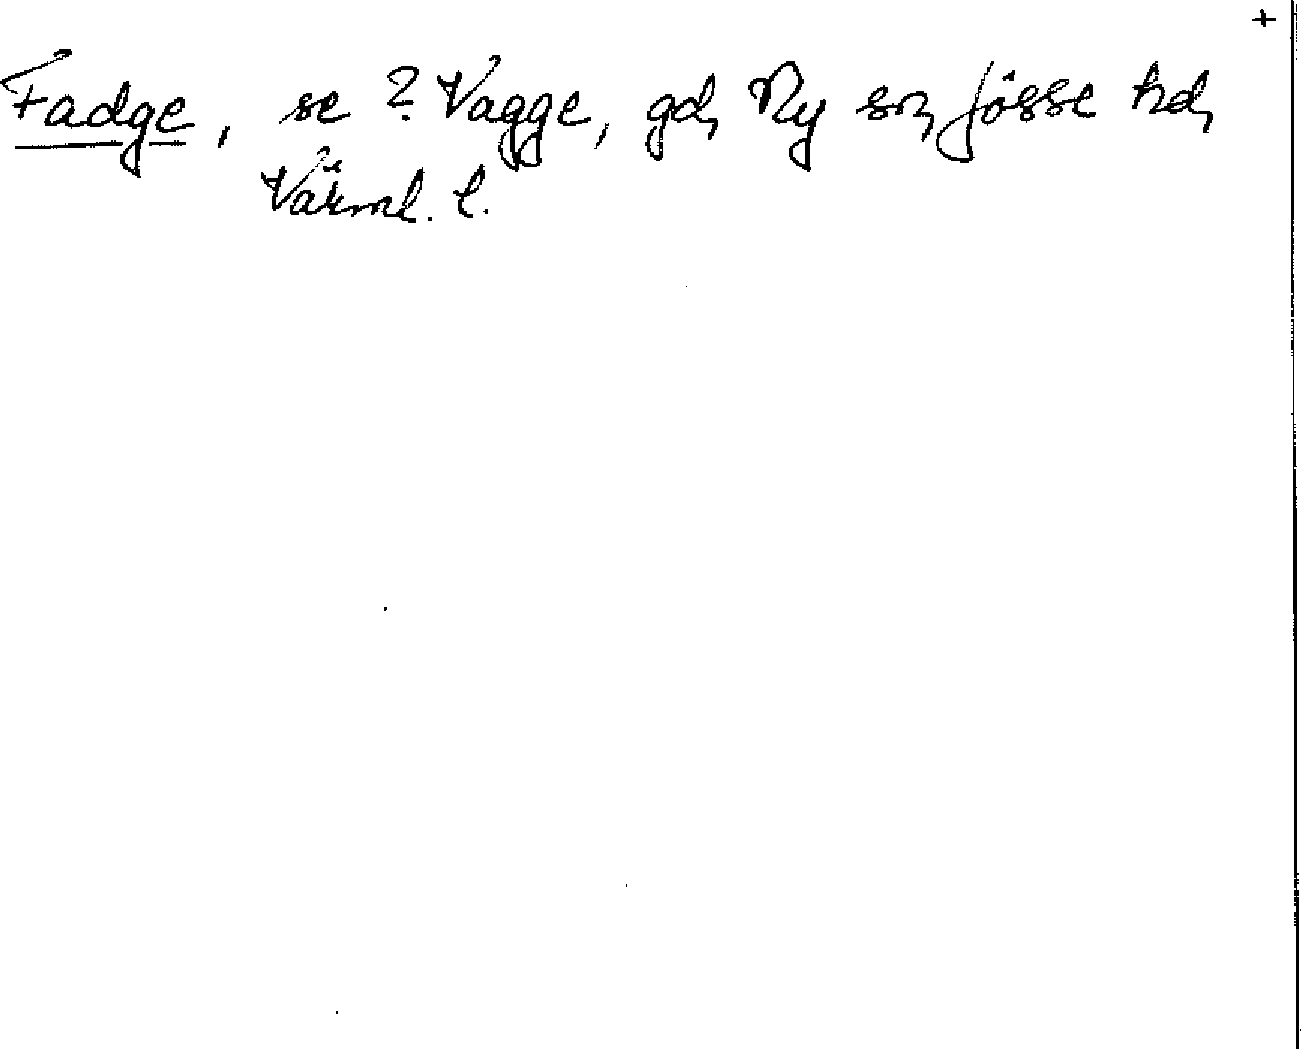 +
Fadge, se ? Vagge, gd, Ny sn, Jösse hd,
Värml. l.